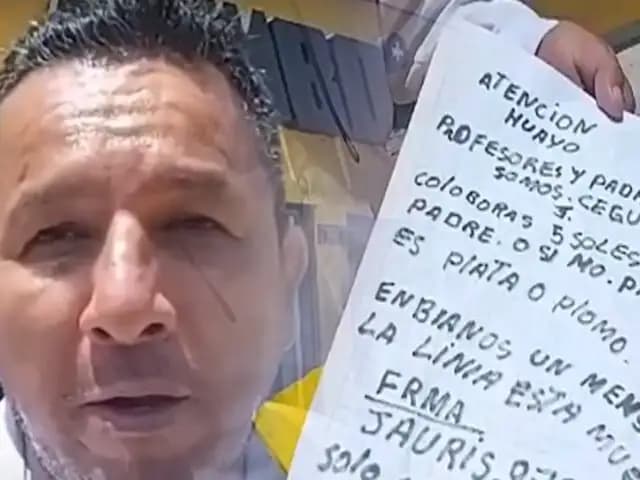 ATENCION
HUAYO
PROFESORES Y PAD
SOMOS. CEGU
COLOBORAS 5 SOLES
PADRE. O SI NO. P
ES PLATA O PLOMO.
ENBIANOS UN MENS
LA LINIA ESTA MUE
FRMA
JAURIS.
Solo